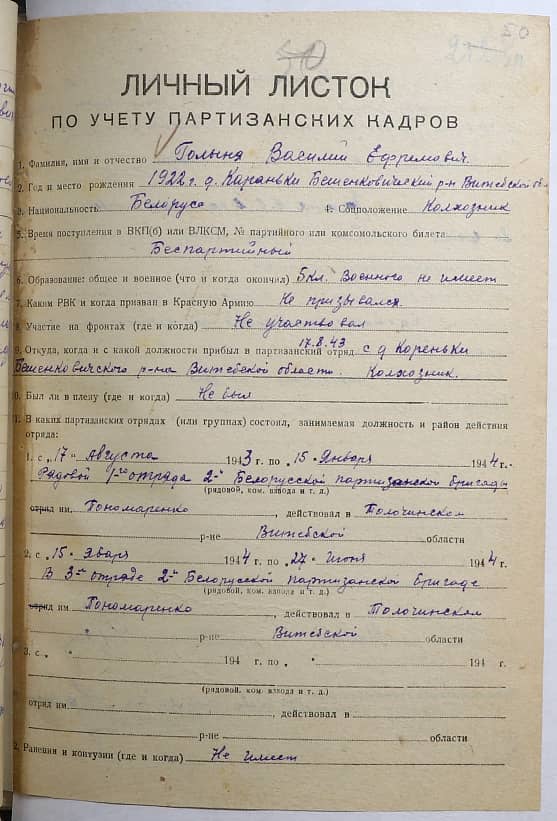 50
50
ЛИЧНЫЙ ЛИСТОК
ПО УЧЕТУ ПАРТИЗАНСКИХ КАДРОВ
1. Фамилия, имя и отчество Голыня Василий Ефремович.
2. Год и место рождения 1922 г. д. Кираньки Бешенковический р-н Витебской
3. Национальность Белорус 4. Соцположение Колхозник
5. Время поступления в ВКП(б) или ВЛКСМ, № партийного или комсомольского билета
Беспартийный
6. Образование: общее и военное (что и когда окончил) 5 кл. Военного не имеет
7. Каким РВК и когда призван в Красную Армию Не призывался.
8. Участие на фронтах (где и когда) Не участвовал
17.8.43
9. Откуда, когда и с какой должности прибыл в партизанский отряд с д Кореньки
Бешенковичского р-на Витебской области. Колхозник.
0. Был ли в плену (где и когда) Не был
1. В каких партизанских отрядах (или группах) состоял, занимаемая должность и район действия
отряда:
1. с „17" Августа 1943 г. по „15" Января 1944 г.
Рядовой 1-го отряда 2-й Белорусской партизанской бригады
(рядовой, ком. взвода и т. д.)
отряд им. Пономаренко, действовал в Толочинском
р-не Витебской области
2. с „15" Января 1944 г. по „27" Июня 1944 г.
В 3-м отряде 2-й Белорусской партизанской бригаде
(рядовой, ком. взвода и т. д.)
отряд им. Пономаренко, действовал в Толочинском
р-не Витебской области
3. с „ " 194 г. по „ " 194 г.
(рядовой, ком. взвода и т. д.)
отряд им. , действовал в
р-не области
2. Ранения и контузии (где и когда) Не имеет